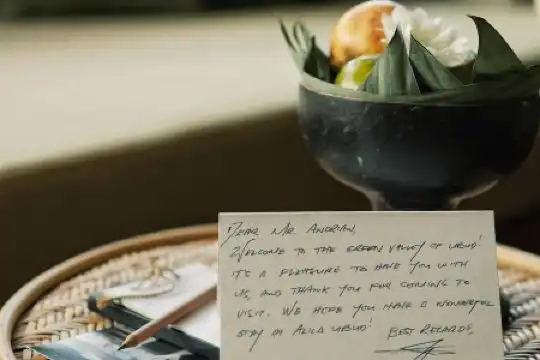 Dear Mr. Andrian,
Welcome to the green valley of Ubud!
It's a pleasure to have you with
us, and thank you for coming to
visit. We hope you have a wonderful
stay in Alila Ubud!
Best Regards,